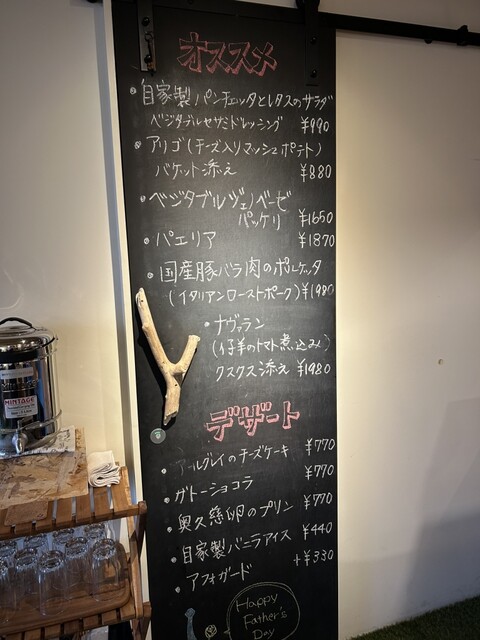 オススメ
・自家製パンチェッタとレタスのサラダ
ベジタブルセサミドレッシング ¥990
・アリゴ(チーズ入りマッシュポテト)
バケット添え ¥880
・ベジタブルジェノベーゼ
パッケリ ¥1650
・パエリア ¥1870
・国産豚バラ肉のポルケッタ
(イタリアンローストポーク) ¥1980
・ナヴァラン
(仔羊のトマト煮込み)
クスクス添え ¥1980
デザート
・アールグレイのチーズケーキ ¥770
・ガトーショコラ ¥770
・奥久慈卵のプリン ¥770
・自家製バニラアイス ¥440
・アフォガード +¥330
Happy
Father's
Day